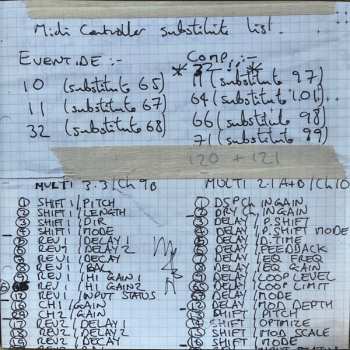 Midi Controller substitute list.
EVENTIDE :-
10 (substitute 65)
11 (substitute 67)
32 (substitute 68)
COMP :-
(substitute 97)
64 (substitute 101)
66 (substitute 98)
71 (substitute 99)
120 + 121
MULTI 3.3/Ch 9
① SHIFT 1/PITCH
② SHIFT 1/LENGTH
③ SHIFT 1/DIR
④ SHIFT 1/MODE
⑤ REV1/DELAY1
REV1/DELAY2
REV1/DELAY
REV1/BAL
REV1/HI GAIN1
REV1/HI GAIN2
REV1/INPUT STATUS
CH1/GAIN
CH2/GAIN
REV2/DELAY
REV2/DELAY2
REV2/DELAY
MULTI 2.1 A+D/Ch10
① DSP Ch INGAIN
② DRY Ch INGAIN
③ DELAY/P.SHIFT
④ DELAY/P.SHIFT MODE
DELAY/D.TIME
DELAY/FEEDBACK
DELAY/EQ FREQ
DELAY/EQ GAIN
DELAY/LOOP LEVEL
DELAY/LOOP LIMIT
DELAY/MODE
DELAY/MOD DEPTH
SHIFT/PITCH
SHIFT/OPTIMIZE
SHIFT/MOD SCALE
SHIFT/MODE